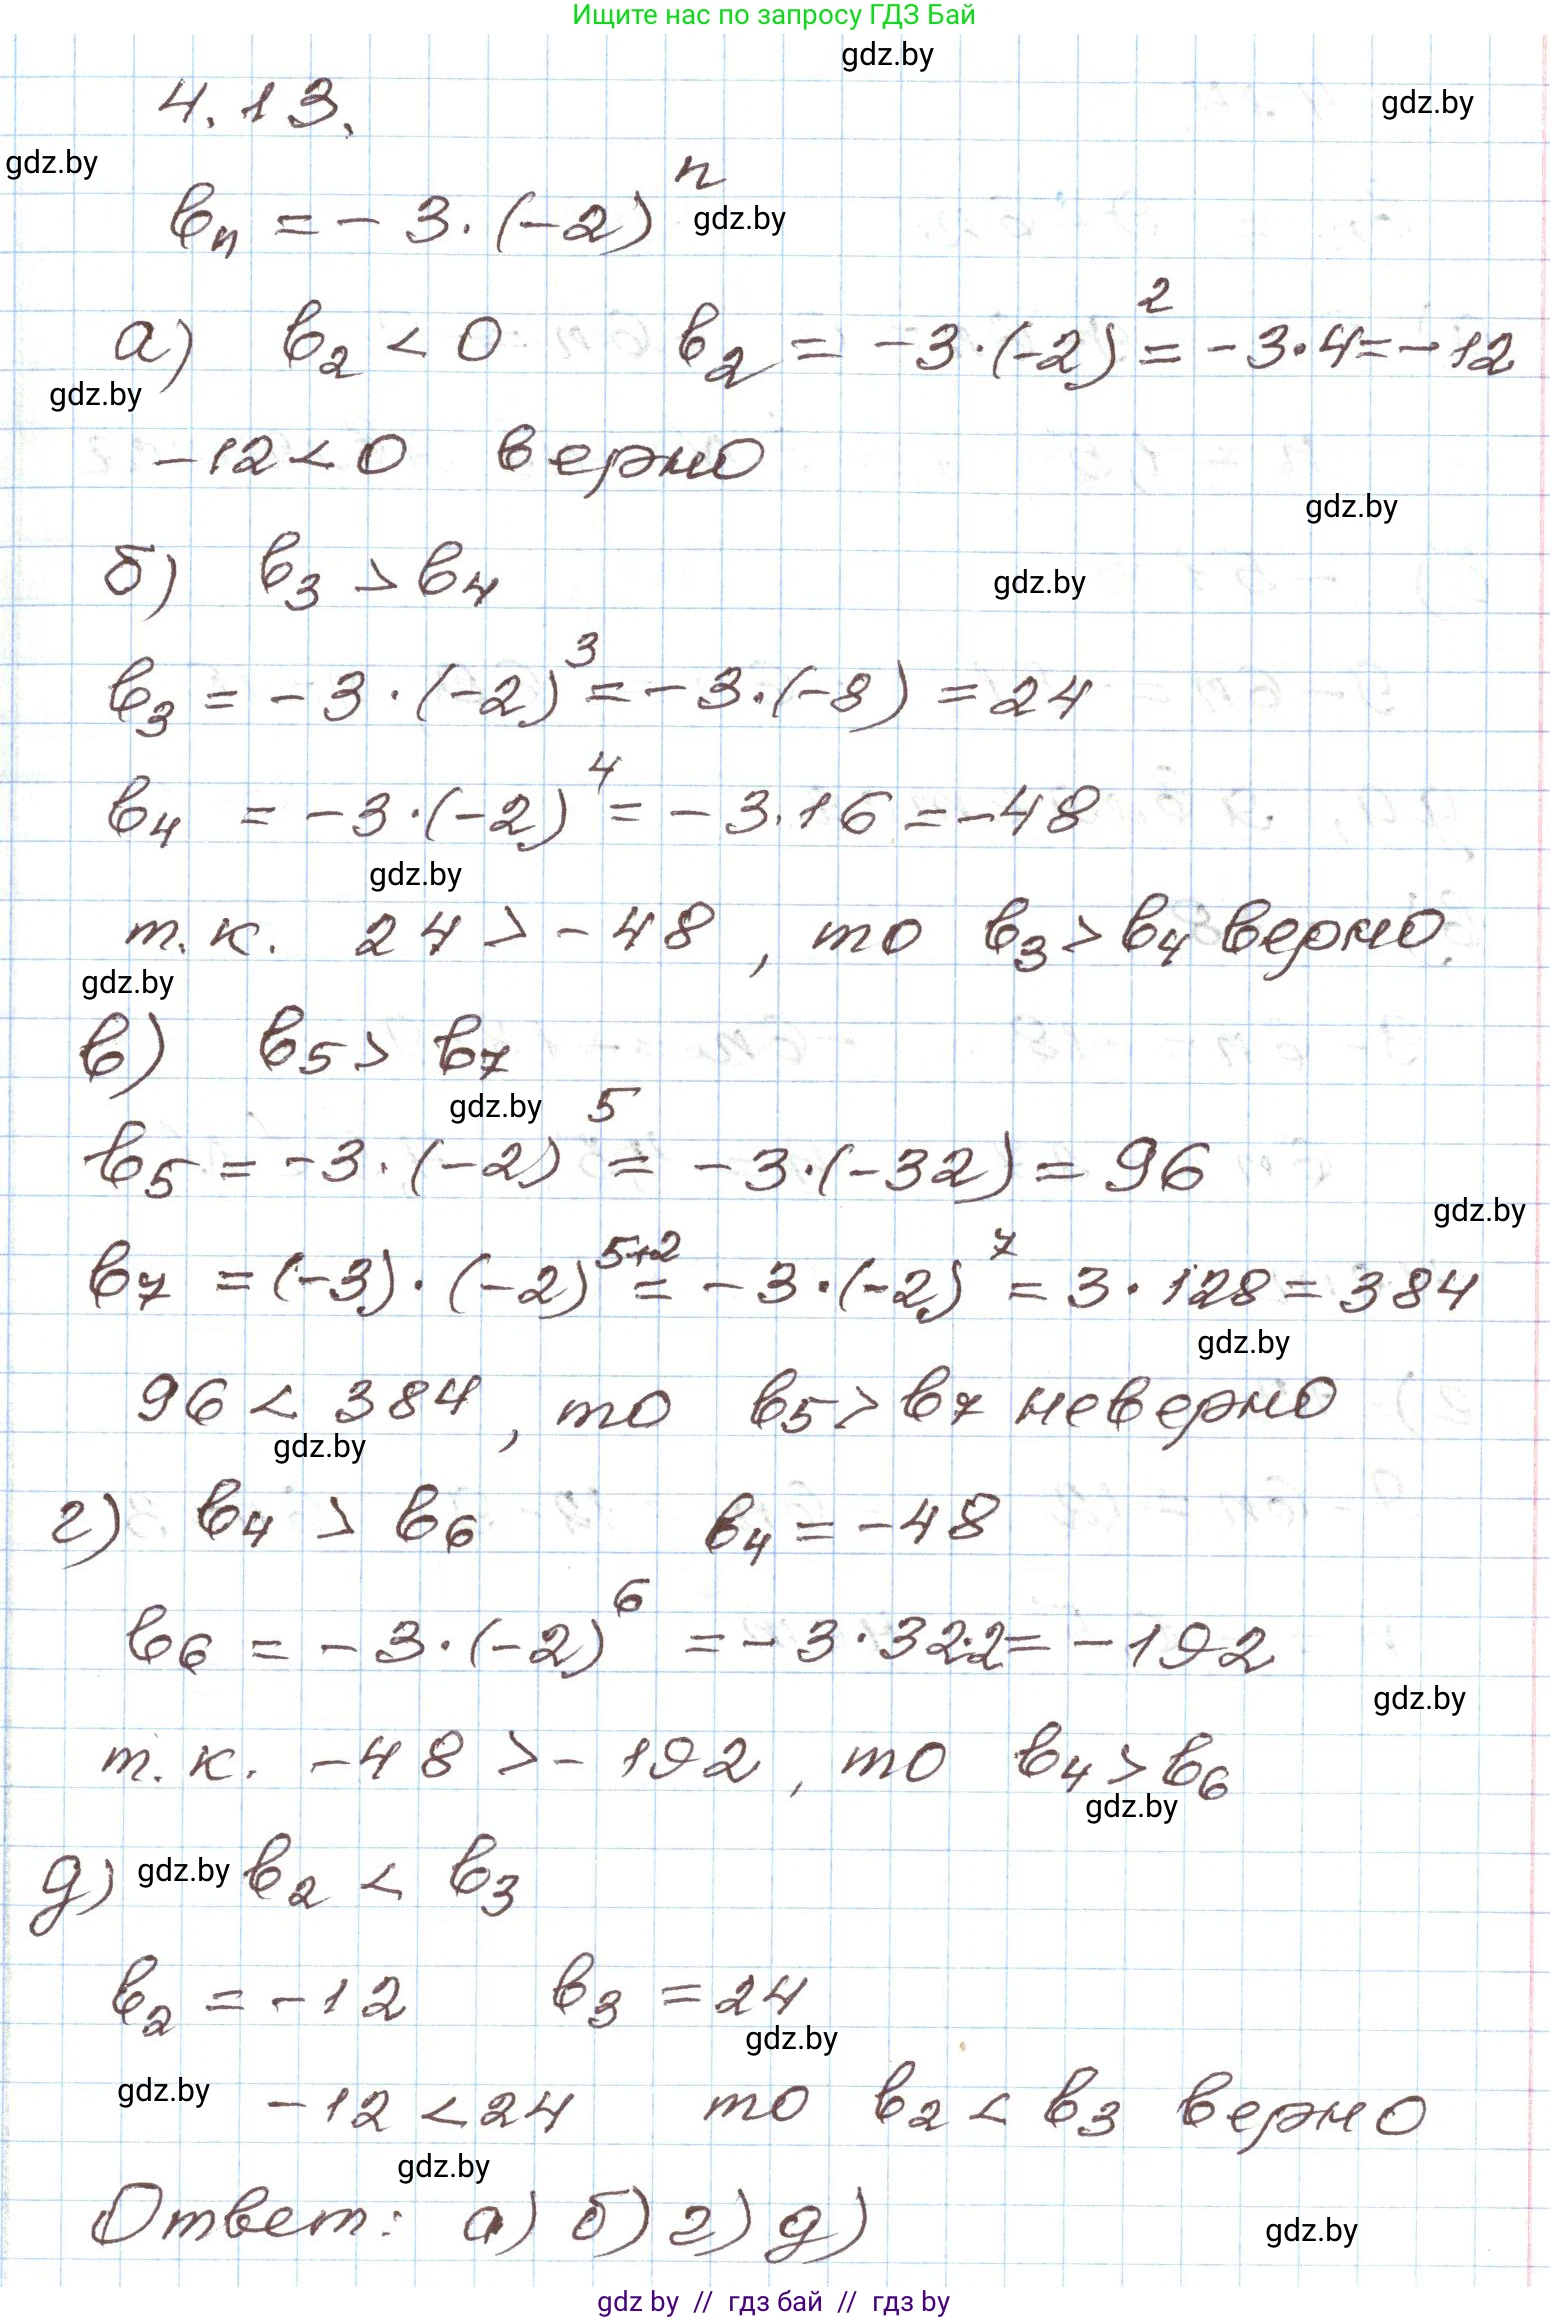 Ищите нас по запросу ГДЗ Бай
gdz.by
4.13.
gdz.by
gdz.by
bₙ = -3·(-2)ⁿ
gdz.by
а) b₂ < 0 b₂ = -3·(-2)² = -3·4 = -12
gdz.by
-12 < 0 верно
gdz.by
б) b₃ > b₄
gdz.by
b₃ = -3·(-2)³ = -3·(-8) = 24
b₄ = -3·(-2)⁴ = -3·16 = -48
gdz.by
т.к. 24 > -48, то b₃ > b₄ верно.
gdz.by
в) b₅ > b₇
gdz.by
b₅ = -3·(-2)⁵ = -3·(-32) = 96
gdz.by
b₇ = (-3)·(-2)⁵⁺² = -3·(-2)⁷ = 3·128 = 384
gdz.by
96 < 384, то b₅ > b₇ неверно
gdz.by
г) b₄ > b₆ b₄ = -48
b₆ = -3·(-2)⁶ = -3·32·2 = -192
gdz.by
т.к. -48 > -192, то b₄ > b₆
gdz.by
д) gdz.by b₂ < b₃
b₂ = -12 b₃ = 24
gdz.by
gdz.by
-12 < 24 то b₂ < b₃ верно
gdz.by
Ответ: а) б) г) д)
gdz.by
gdz by // гдз бай // gdz by